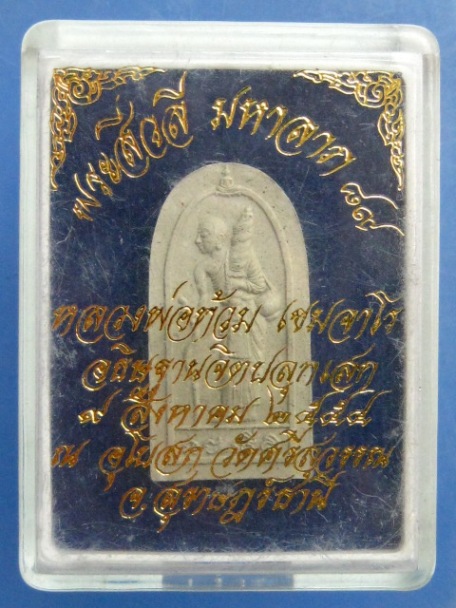 พระสีวลี มหาลาภ ๘๙
หลวงพ่อท้วม เขมจาโร
อธิษฐานจิตปลุกเสก
๙ สิงหาคม ๒๕๕๔
ณ อุโบสถ วัดศรีสุวรรณ
จ.สุราษฎร์ธานี